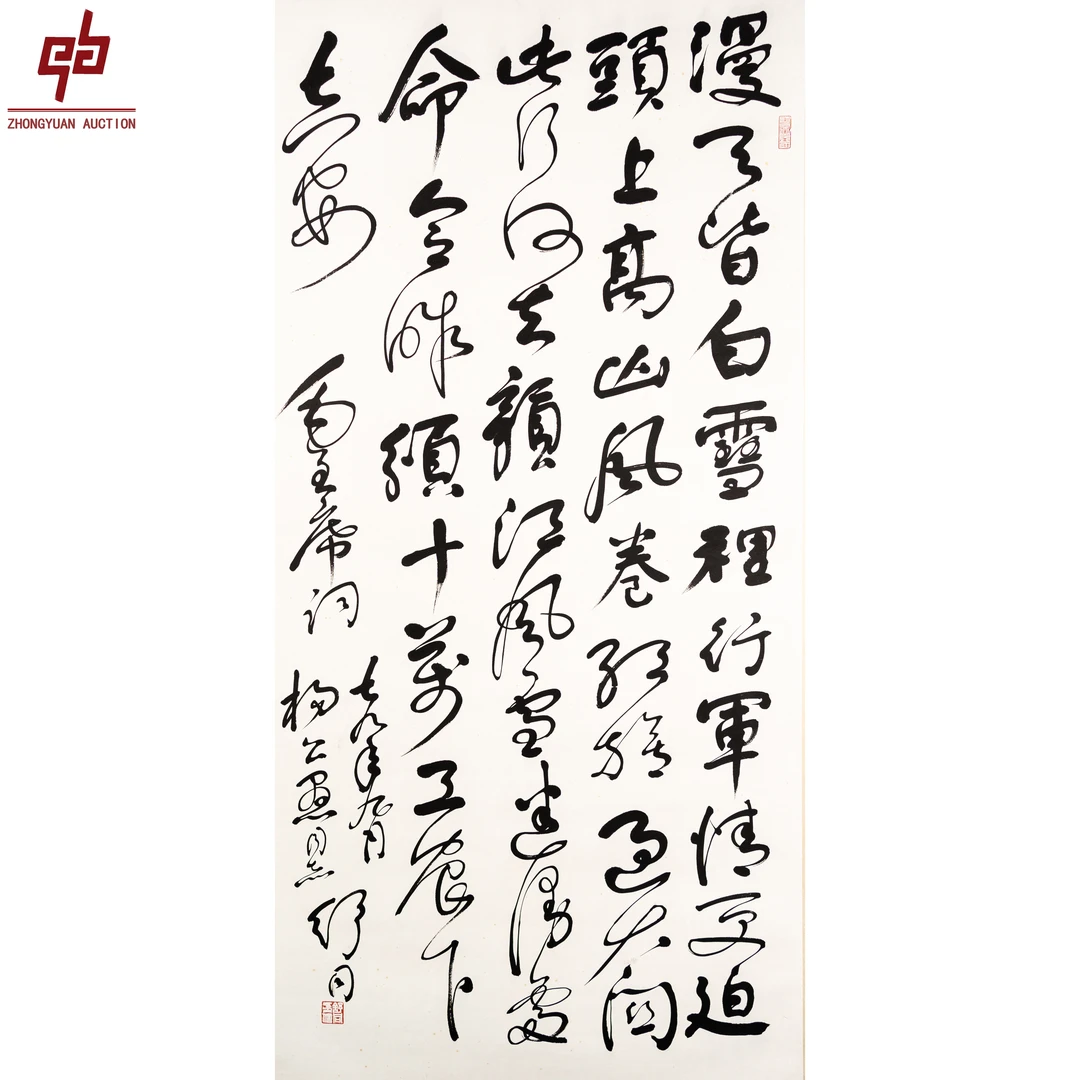 ZHONGYUAN AUCTION
漫天皆白雪裡行軍情更迫
頭上高山風卷红旗過大關
此行何去贛江風雪迷漫處
命令昨頒十萬工農下
吉安 毛主席詞
七九年九月
楊公愚同志 舒同